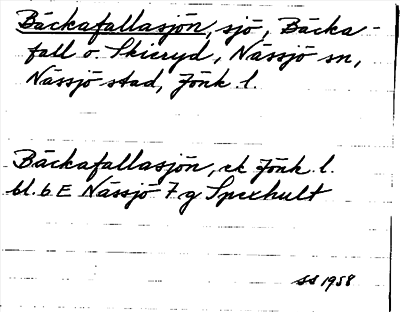 Bäckafallasjön, sjö, Bäcka-
fall o. Skieryd, Nässjö sn,
Nässjö stad, Jönk l.
Bäckafallasjön, ek Jönk. l.
bl. 6 E Nässjö 7 g Spexhult
SS 1958